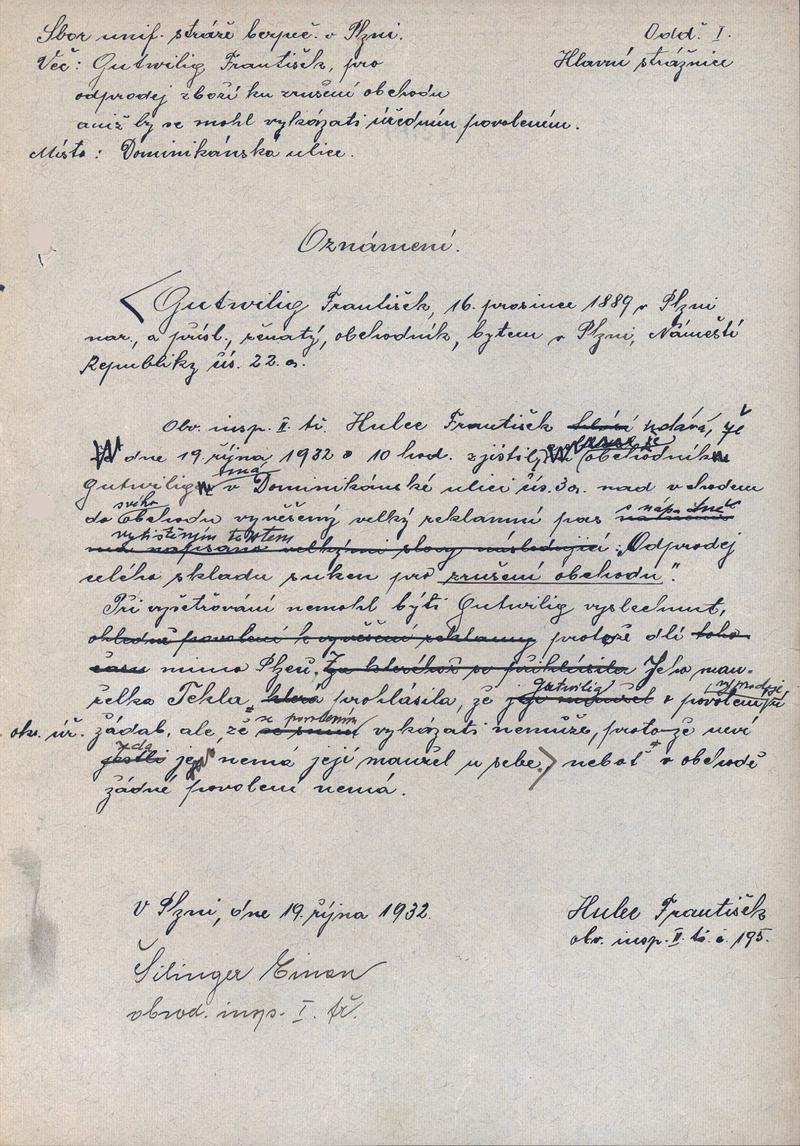 Sbor unif. stráže bezpeč. v Plzni. Odd. I.
Věc: Gutwilig František, pro Hlavní strážnice
odprodej zboží ku zrušení obchodu
aniž by se mohl vykázati úředním povolením.
Místo: Dominikánská ulice.
Oznámení.
Gutwilig František, 16. prosince 1889 v Plzni
nar., a přísl., ženatý, obchodník, bytem v Plzni, Náměstí
Republiky čís. 22.
Obv. insp. II. tř. Hulec František hlásí udává, že
dne 19. října 1932 o 10 hod. zjistil, že obchodník
Gutwilig má v Dominikánské ulici čís. 3 nad vchodem
do svého obchodu vyvěšený velký reklamní pas s nápadně
vytištěným textem
než napsáno velkými slovy následující: „Odprodej
celého skladu suken pro zrušení obchodu".
Při vyšetřování nemohl býti Gutwilig vyslechnut,
ohledně povolení k vyvěšení reklamy protože dlí toho
času mimo Plzeň. Jeho man-
želka Tekla, která prohlásila, že Gutwilig o povolení
ok. úř. žádal, ale, že se povolením vykázati nemůže, protože neví
jestli zda jej nemá její manžel u sebe, neboť v obchodě
žádné povolení nemá.
V Plzni, dne 19. října 1932. Hulec František
obv. insp. II. tř. č. 195.
Šilinger
obvod. insp. I. tř.